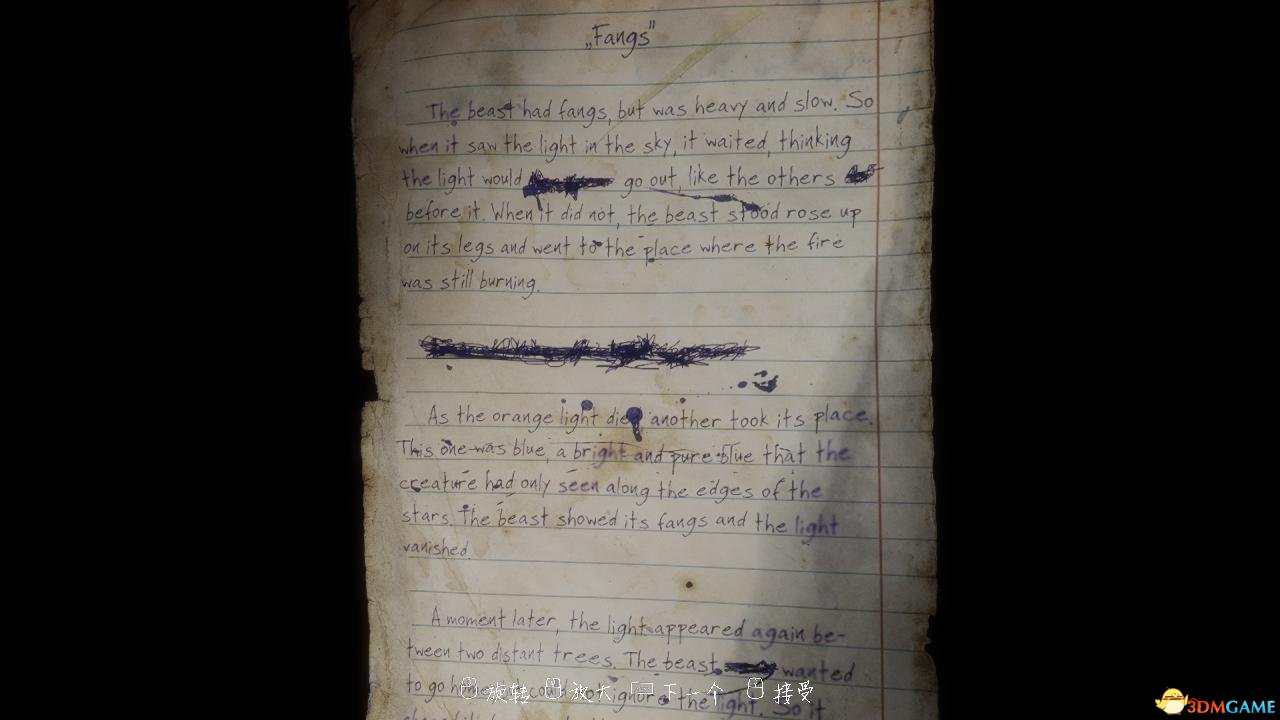 „Fangs"
The beast had fangs, but was heavy and slow. So
when it saw the light in the sky, it waited, thinking
the light would go out, like the others
before it. When it did not, the beast stood rose up
on its legs and went to the place where the fire
was still burning.
As the orange light died, another took its place.
This one was blue, a bright and pure blue that the
creature had only seen along the edges of the
stars. The beast showed its fangs and the light
vanished.
A moment later, the light appeared again be-
tween two distant trees. The beast wanted
to go the light. So it
旋转 放大 下一个 接受
3DMGAME